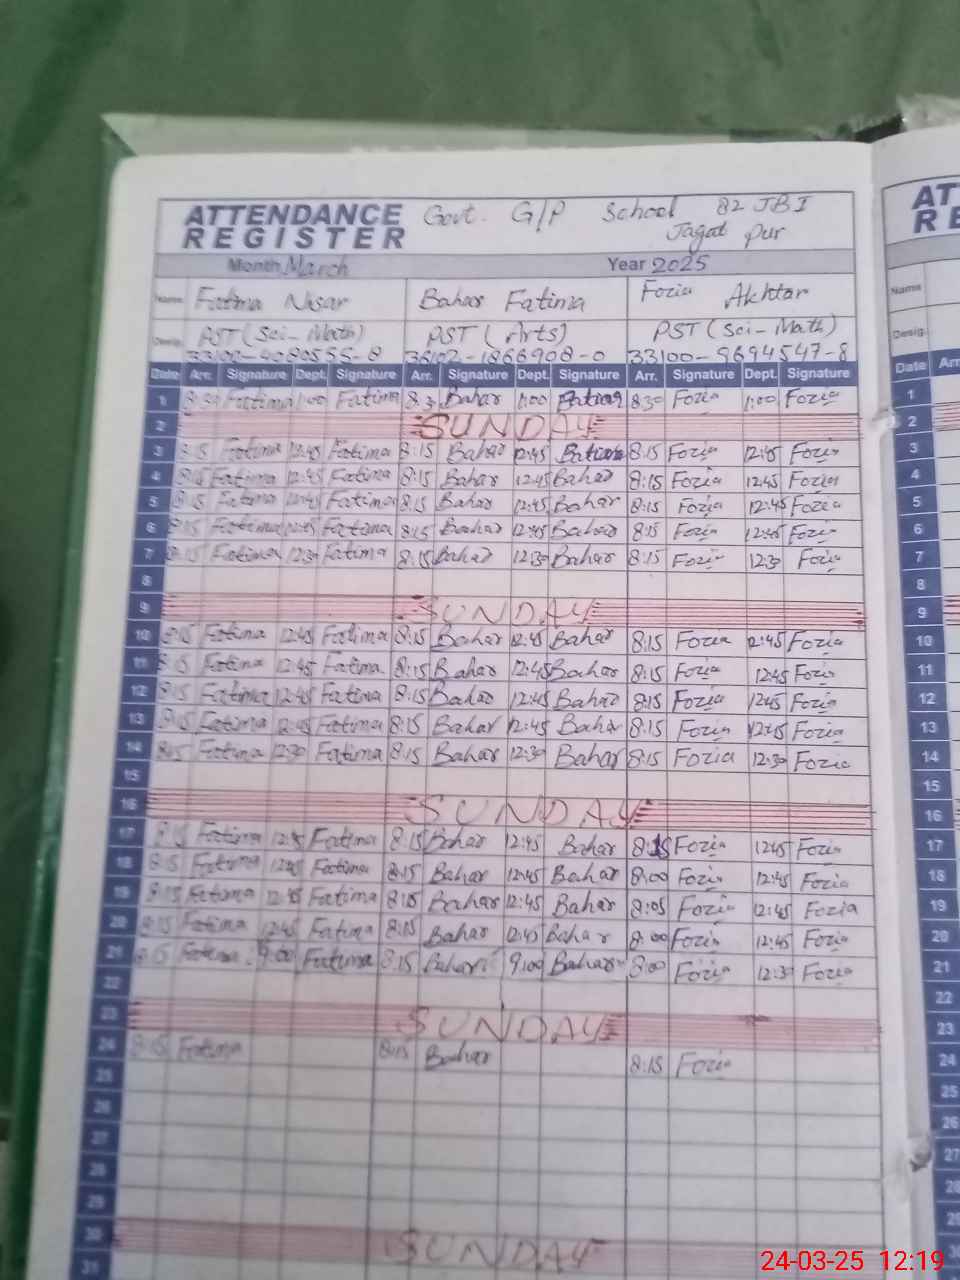 ATTENDANCE REGISTER Govt. G/P School 82 JBI
Jagat Pur
Month March Year 2025
Name Fatima Nisar Bahar Fatima Fozia Akhtar
Desig. PST (Sci-Math) PST (Arts) PST (Sci-Math)
33100-9694547-8
Date Arr. Signature Dept. Signature Arr. Signature Dept. Signature Arr. Signature Dept. Signature
1 8:30 Fatima 1:00 Fatima 8:30 Bahar 1:00 8:30 Fozia 1:00 Fozia
2 SUNDAY
3 8:15 Fatima 12:45 Fatima 8:15 Bahar 12:45 8:15 Fozia 12:45 Fozia
4 8:15 Fatima 12:45 Fatima 8:15 Bahar 12:45 Bahar 8:15 Fozia 12:45 Fozia
5 8:15 Fatima 12:45 Fatima 8:15 Bahar 12:45 Bahar 8:15 Fozia 12:45 Fozia
6 8:15 Fatima 12:45 Fatima 8:15 Bahar 12:45 Bahar 8:15 Fozia 12:45 Fozia
7 8:15 Fatima 12:30 Fatima 8:15 Bahar 12:30 Bahar 8:15 Fozia 12:30 Fozia
8
9 SUNDAY
10 8:15 Fatima 12:45 Fatima 8:15 Bahar 12:45 Bahar 8:15 Fozia 12:45 Fozia
11 8:15 Fatima 12:45 Fatima 8:15 Bahar 12:45 Bahar 8:15 Fozia 12:45 Fozia
12 8:15 Fatima 12:45 Fatima 8:15 Bahar 12:45 Bahar 8:15 Fozia 12:45 Fozia
13 8:15 Fatima 12:45 Fatima 8:15 Bahar 12:45 Bahar 8:15 Fozia 12:45 Fozia
14 8:15 Fatima 12:30 Fatima 8:15 Bahar 12:30 Bahar 8:15 Fozia 12:30 Fozia
15
16 SUNDAY
17 8:15 Fatima 12:45 Fatima 8:15 Bahar 12:45 Bahar 8:15 Fozia 12:45 Fozia
18 8:15 Fatima 12:45 Fatima 8:15 Bahar 12:45 Bahar 8:00 Fozia 12:45 Fozia
19 8:15 Fatima 12:45 Fatima 8:15 Bahar 12:45 Bahar 8:05 Fozia 12:45 Fozia
20 8:15 Fatima 12:45 Fatima 8:15 Bahar 12:45 Bahar 8:00 Fozia 12:45 Fozia
21 Fatima 9:00 Fatima 8:15 Bahar 9:00 Bahar 8:00 Fozia 12:30 Fozia
22
23 SUNDAY
24 8:15 Fatima 8:15 Bahar 8:15 Fozia
25
26
27
28
29
30 SUNDAY
31
AT
RE
Name
Desig.
Date Arr
1
2
3
4
5
6
7
8
9
10
11
12
13
14
15
16
17
18
19
20
21
22
23
24
25
26
27
28
29
24-03-25 12:19